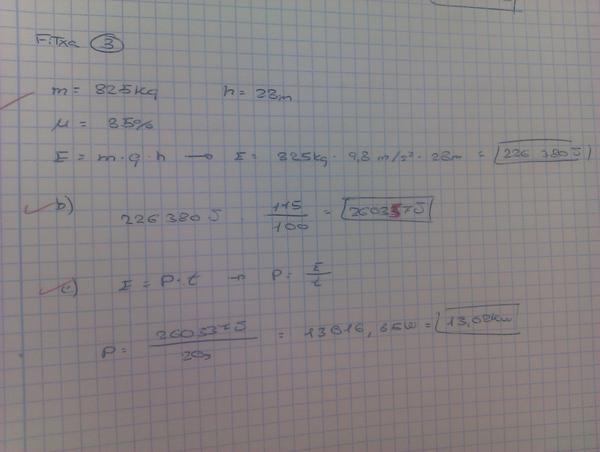 Fitxa 3
m = 825kg h = 28m
μ = 85%
E = m·g·h → E = 825kg · 9,8 m/s² · 28m = 226 380J
b) 226380J · 115/100 = 260337J
c) E = P·t → P = E/t
P = 260337J / 20s = 13016,85W = 13,02kW